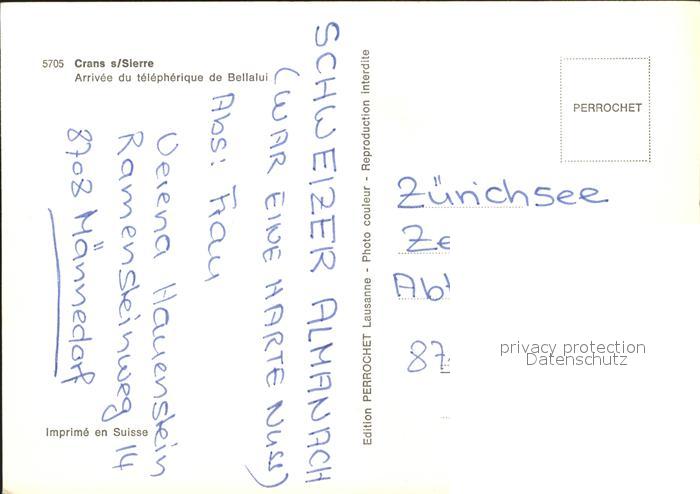 5705 Crans s/Sierre
Arrivée du téléphérique de Bellalui
SCHWEIZER ALMANACH
(WAR EINE HARTE NUSS)
Abs: Frau
Verena Hauenstein
Ramensteinweg 14
8708 Männedorf
Imprimé en Suisse
Edition PERROCHET Lausanne - Photo couleur - Reproduction interdite
PERROCHET
Zürichsee
Ze
Abt
87
privacy protection
Datenschutz